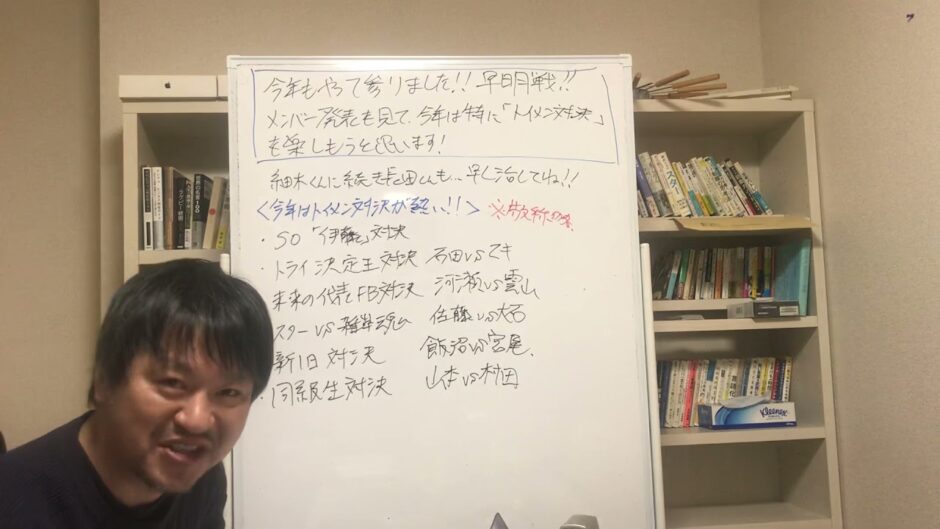 今年もやって参りました!! 早明戦!!
メンバー発表も見て、今年は特に「トイメン対決」
を楽しもうと思います!
細木くんに続き長田くんも… 早く治してね!!
<今年はトイメン対決が熱い!!> ※敬称略
・SO 「伊藤」対決
・トライ決定王対決 石田vsマキ
・未来の代表FB対決 河瀬vs雲山
・スターvs雑草魂 佐藤vs大石
・新旧対決 飯沼vs宮尾
・同級生対決 山本vs村田
Kleenex